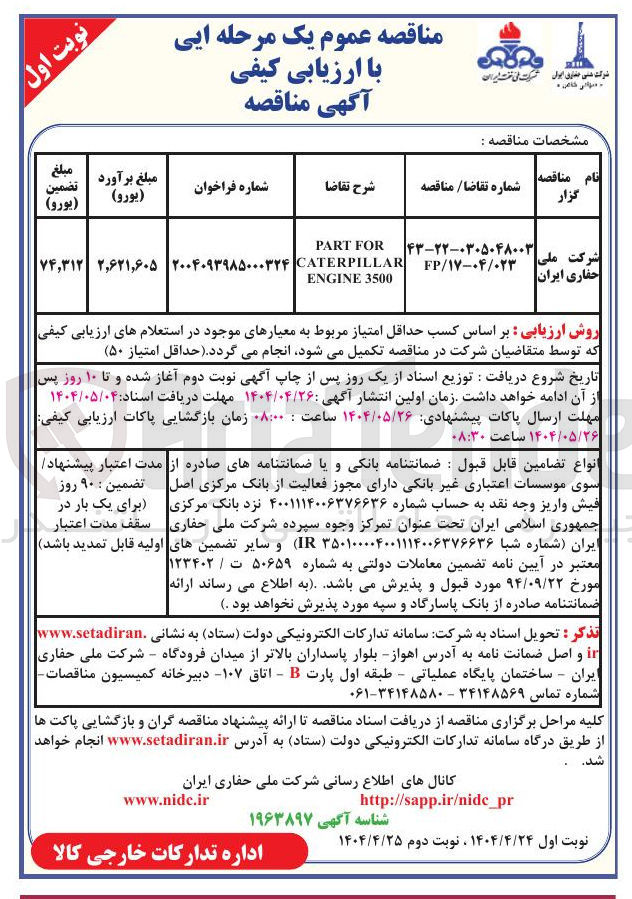 نوبت اول
مناقصه عموم یک مرحله ایی
با ارزیابی کیفی
آگهی مناقصه
شرکت ملی نفت ایران
شرکت ملی حفاری ایران
«سهامی خاص»
مشخصات مناقصه :
نام مناقصه گزار
شماره تقاضا/ مناقصه
شرح تقاضا
شماره فراخوان
مبلغ برآورد (یورو)
مبلغ تضمین (یورو)
شرکت ملی حفاری ایران
۴۳-۲۲-۰۳۰۵۰۴۸۰۰۳
FP/۱۷-۰۴/۰۲۳
PART FOR
CATERPILLAR
ENGINE 3500
۲۰۰۴۰۹۳۹۸۵۰۰۰۳۲۴
۲,۶۲۱,۶۰۵
۷۴,۳۱۲
روش ارزیابی : بر اساس کسب حداقل امتیاز مربوط به معیارهای موجود در استعلام های ارزیابی کیفی
که توسط متقاضیان شرکت در مناقصه تکمیل می شود، انجام می گردد.(حداقل امتیاز ۵۰)
تاریخ شروع دریافت : توزیع اسناد از یک روز پس از چاپ آگهی نوبت دوم آغاز شده و تا ۱۰ روز پس
از آن ادامه خواهد داشت .زمان اولین انتشار آگهی :۱۴۰۴/۰۴/۲۶ مهلت دریافت اسناد:۱۴۰۴/۰۵/۰۴
مهلت ارسال پاکات پیشنهادی: ۱۴۰۴/۰۵/۲۶ ساعت : ۰۸:۰۰ زمان بازگشایی پاکات ارزیابی کیفی:
۱۴۰۴/۰۵/۲۶ ساعت ۰۸:۳۰
انواع تضامین قابل قبول : ضمانتنامه بانکی و یا ضمانتنامه های صادره از
سوی موسسات اعتباری غیر بانکی دارای مجوز فعالیت از بانک مرکزی اصل
فیش واریز وجه نقد به حساب شماره ۴۰۰۱۱۱۴۰۰۶۳۷۶۶۳۶ نزد بانک مرکزی
جمهوری اسلامی ایران تحت عنوان تمرکز وجوه سپرده شرکت ملی حفاری
ایران (شماره شبا IR ۳۵۰۱۰۰۰۰۴۰۰۱۱۱۴۰۰۶۳۷۶۶۳۶) و سایر تضمین های
معتبر در آیین نامه تضمین معاملات دولتی به شماره ۵۰۶۵۹ ت / ۱۲۳۴۰۲
مورخ ۹۴/۰۹/۲۲ مورد قبول و پذیرش می باشد. .(به اطلاع می رساند ارائه
ضمانتنامه صادره از بانک پاسارگاد و سپه مورد پذیرش نخواهد بود .)
مدت اعتبار پیشنهاد/
تضمین : ۹۰ روز
(برای یک بار در
سقف مدت اعتبار
اولیه قابل تمدید باشد)
تذکر : تحویل اسناد به شرکت: سامانه تدارکات الکترونیکی دولت (ستاد) به نشانی www.setadiran.
ir و اصل ضمانت نامه به آدرس اهواز- بلوار پاسداران بالاتر از میدان فرودگاه - شرکت ملی حفاری
ایران - ساختمان پایگاه عملیاتی - طبقه اول پارت B - اتاق ۱۰۷- دبیرخانه کمیسیون مناقصات-
شماره تماس ۳۴۱۴۸۵۶۹ - ۳۴۱۴۸۵۸۰-۰۶۱
کلیه مراحل برگزاری مناقصه از دریافت اسناد مناقصه تا ارائه پیشنهاد مناقصه گران و بازگشایی پاکت ها
از طریق درگاه سامانه تدارکات الکترونیکی دولت (ستاد) به آدرس www.setadiran.ir انجام خواهد
شد. .
کانال های اطلاع رسانی شرکت ملی حفاری ایران
www.nidc.ir http://sapp.ir/nidc_pr
شناسه آگهی ۱۹۶۳۸۹۷
نوبت اول ۱۴۰۴/۴/۲۴ ، نوبت دوم ۱۴۰۴/۴/۲۵
اداره تدارکات خارجی کالا